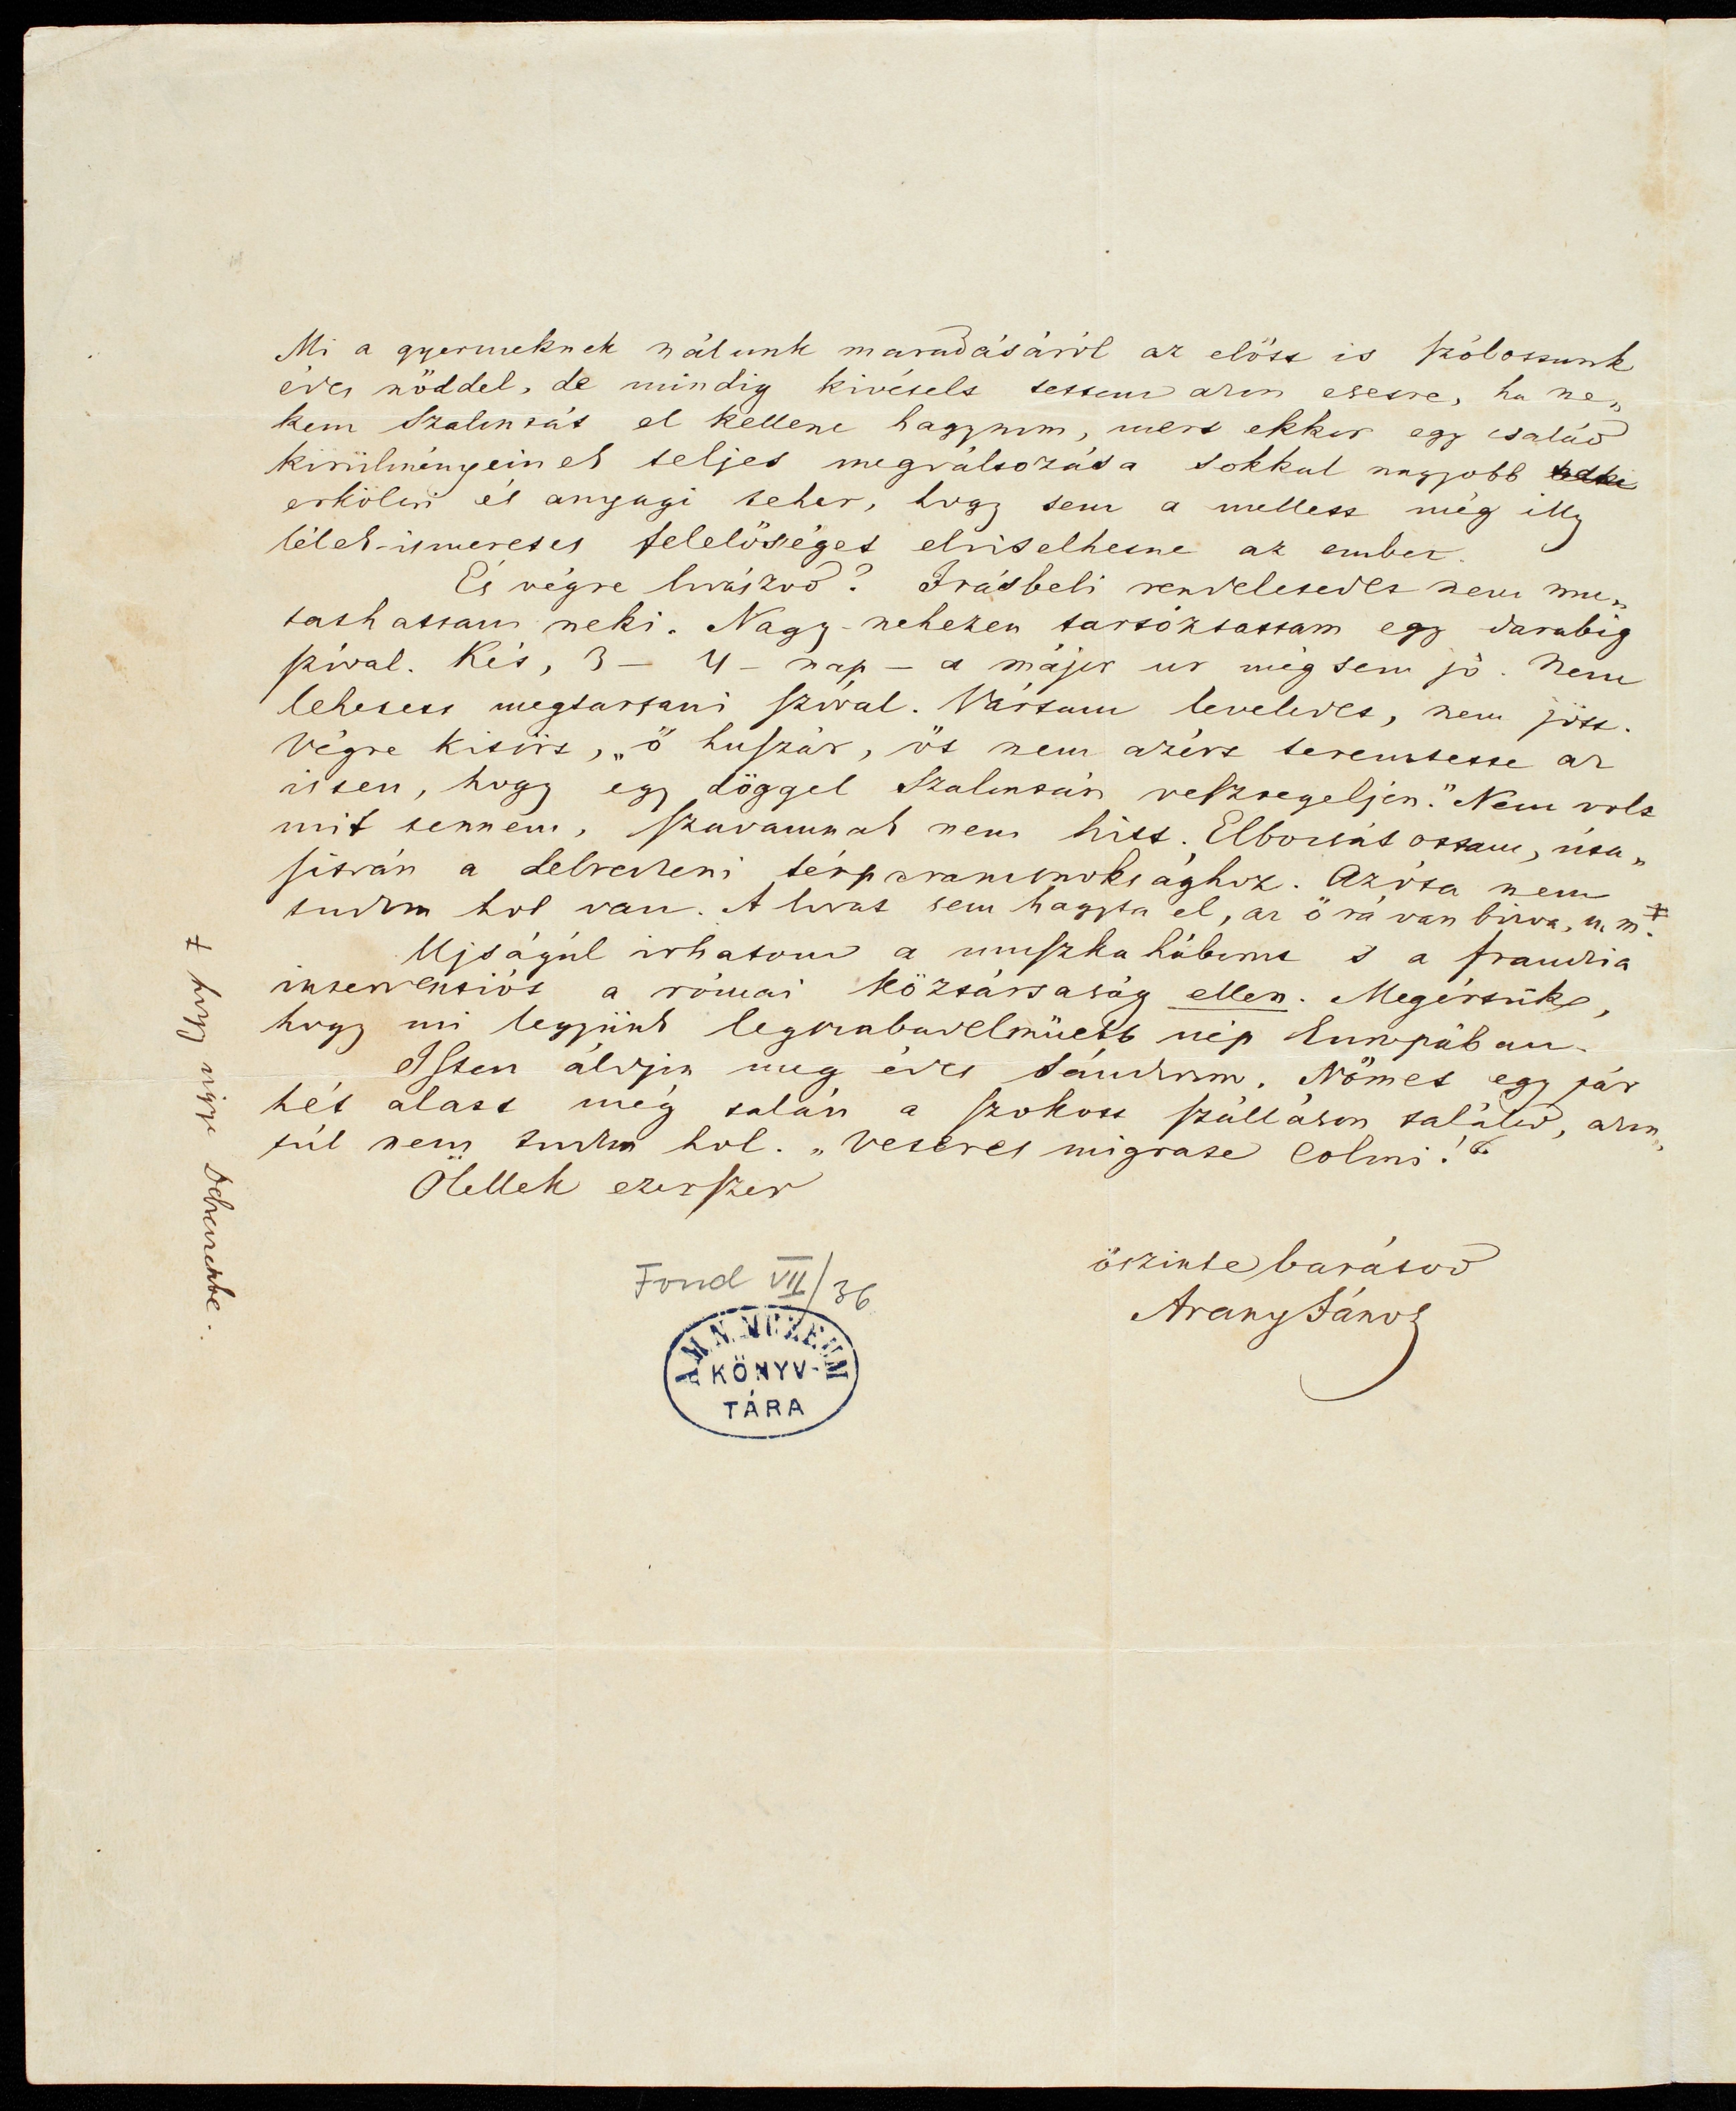 Mi a gyermeknek nálunk maradásáról az előtt is szólottunk
édes nőddel, de mindig kivételt tettem azon esetre, ha ne„
kem Szalontát el kellene hagynom, mert ekkor egy család
körülményeinek teljes megváltozása sokkal nagyobb
erkölcsi és anyagi teher, hogy sem a mellett még illy
lélek-ismeretes felelőséget elviselhetne az ember.
És végre lovászod? Irásbeli rendeletedet nem mu„
tathattam neki. Nagy-nehezen tartóztattam egy darabig
szóval. Két, 3 – 4 – nap – a májor ur még sem jö. Nem
lehetett megtartani szóval. Vártam leveledet, nem jött.
Végre kitört, „ő huszár, őt nem azért teremtette az
isten, hogy egy döggel Szalontán veszszegeljen." Nem volt
mit tennem, szavamnak nem hitt. Elbocsátottam, uta„
sitván a debreczeni térparancsnoksághoz. Azóta nem
tudom hol van. A lovat sem hagyta el, az ő rá van bizva, u. m. ≠
Ujságúl irhatom a muszka háborut s a franczia
interventiót a római köztársaság ellen. Megértük,
hogy mi legyünk legszabadelmüebb nép Európában.
Isten áldjon meg édes Sándorom. Nőmet egy pár
hét alatt még talán a szokott szálláson találod, azon
túl nem tudom hol. „Veteres migrate coloni!"
Ölellek ezerszer
őszinte barátod
Arany János
≠ hogy vigye Debreczenbe.
Fond VII/36
A M. N. MUZEUM
KÖNYV-
TÁRA